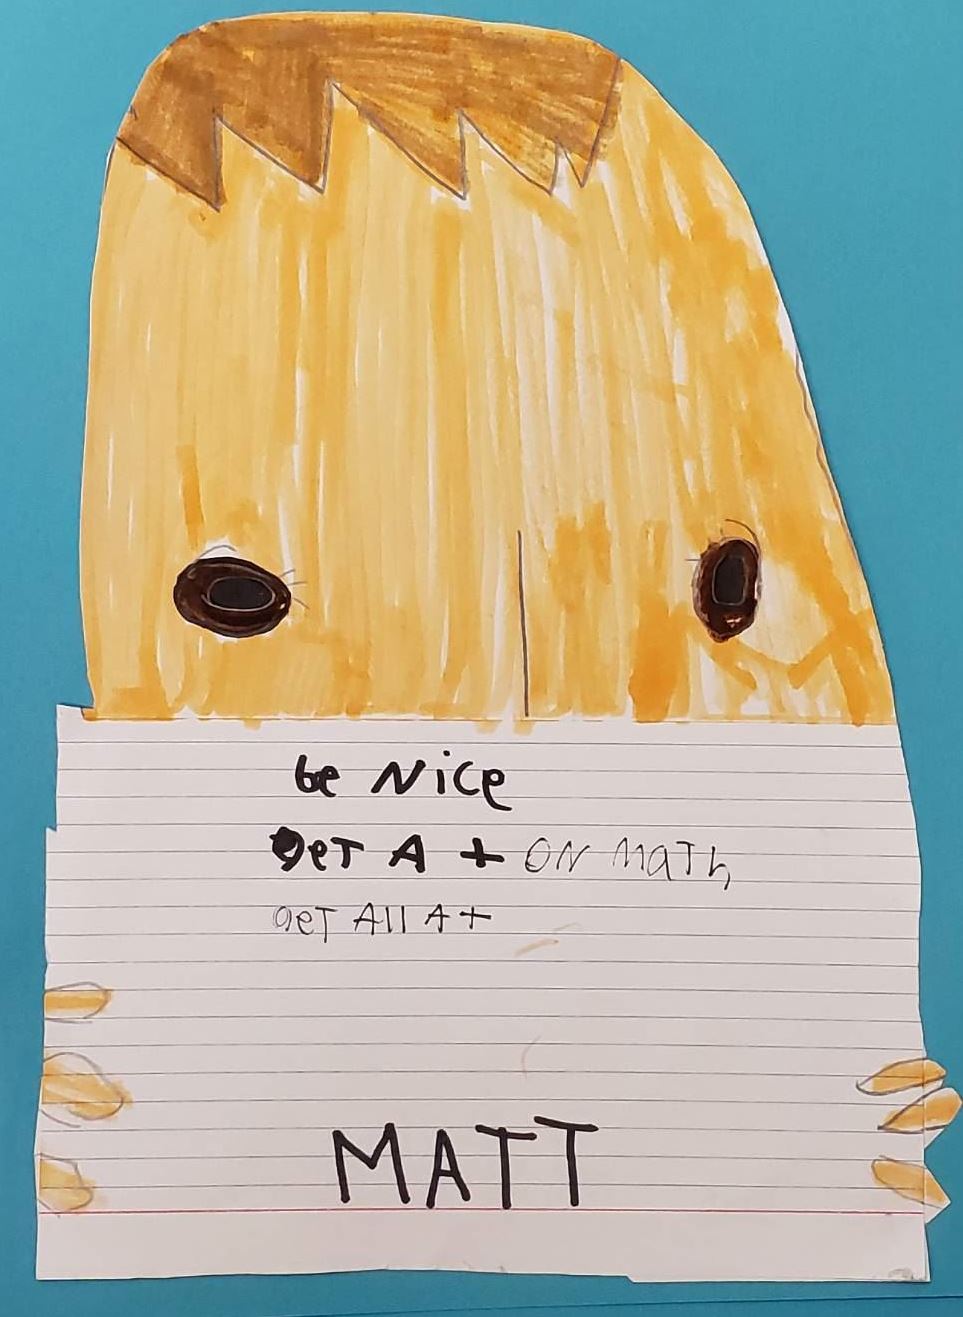 be Nice
get A + ON MaTh
geT All A+
MATT